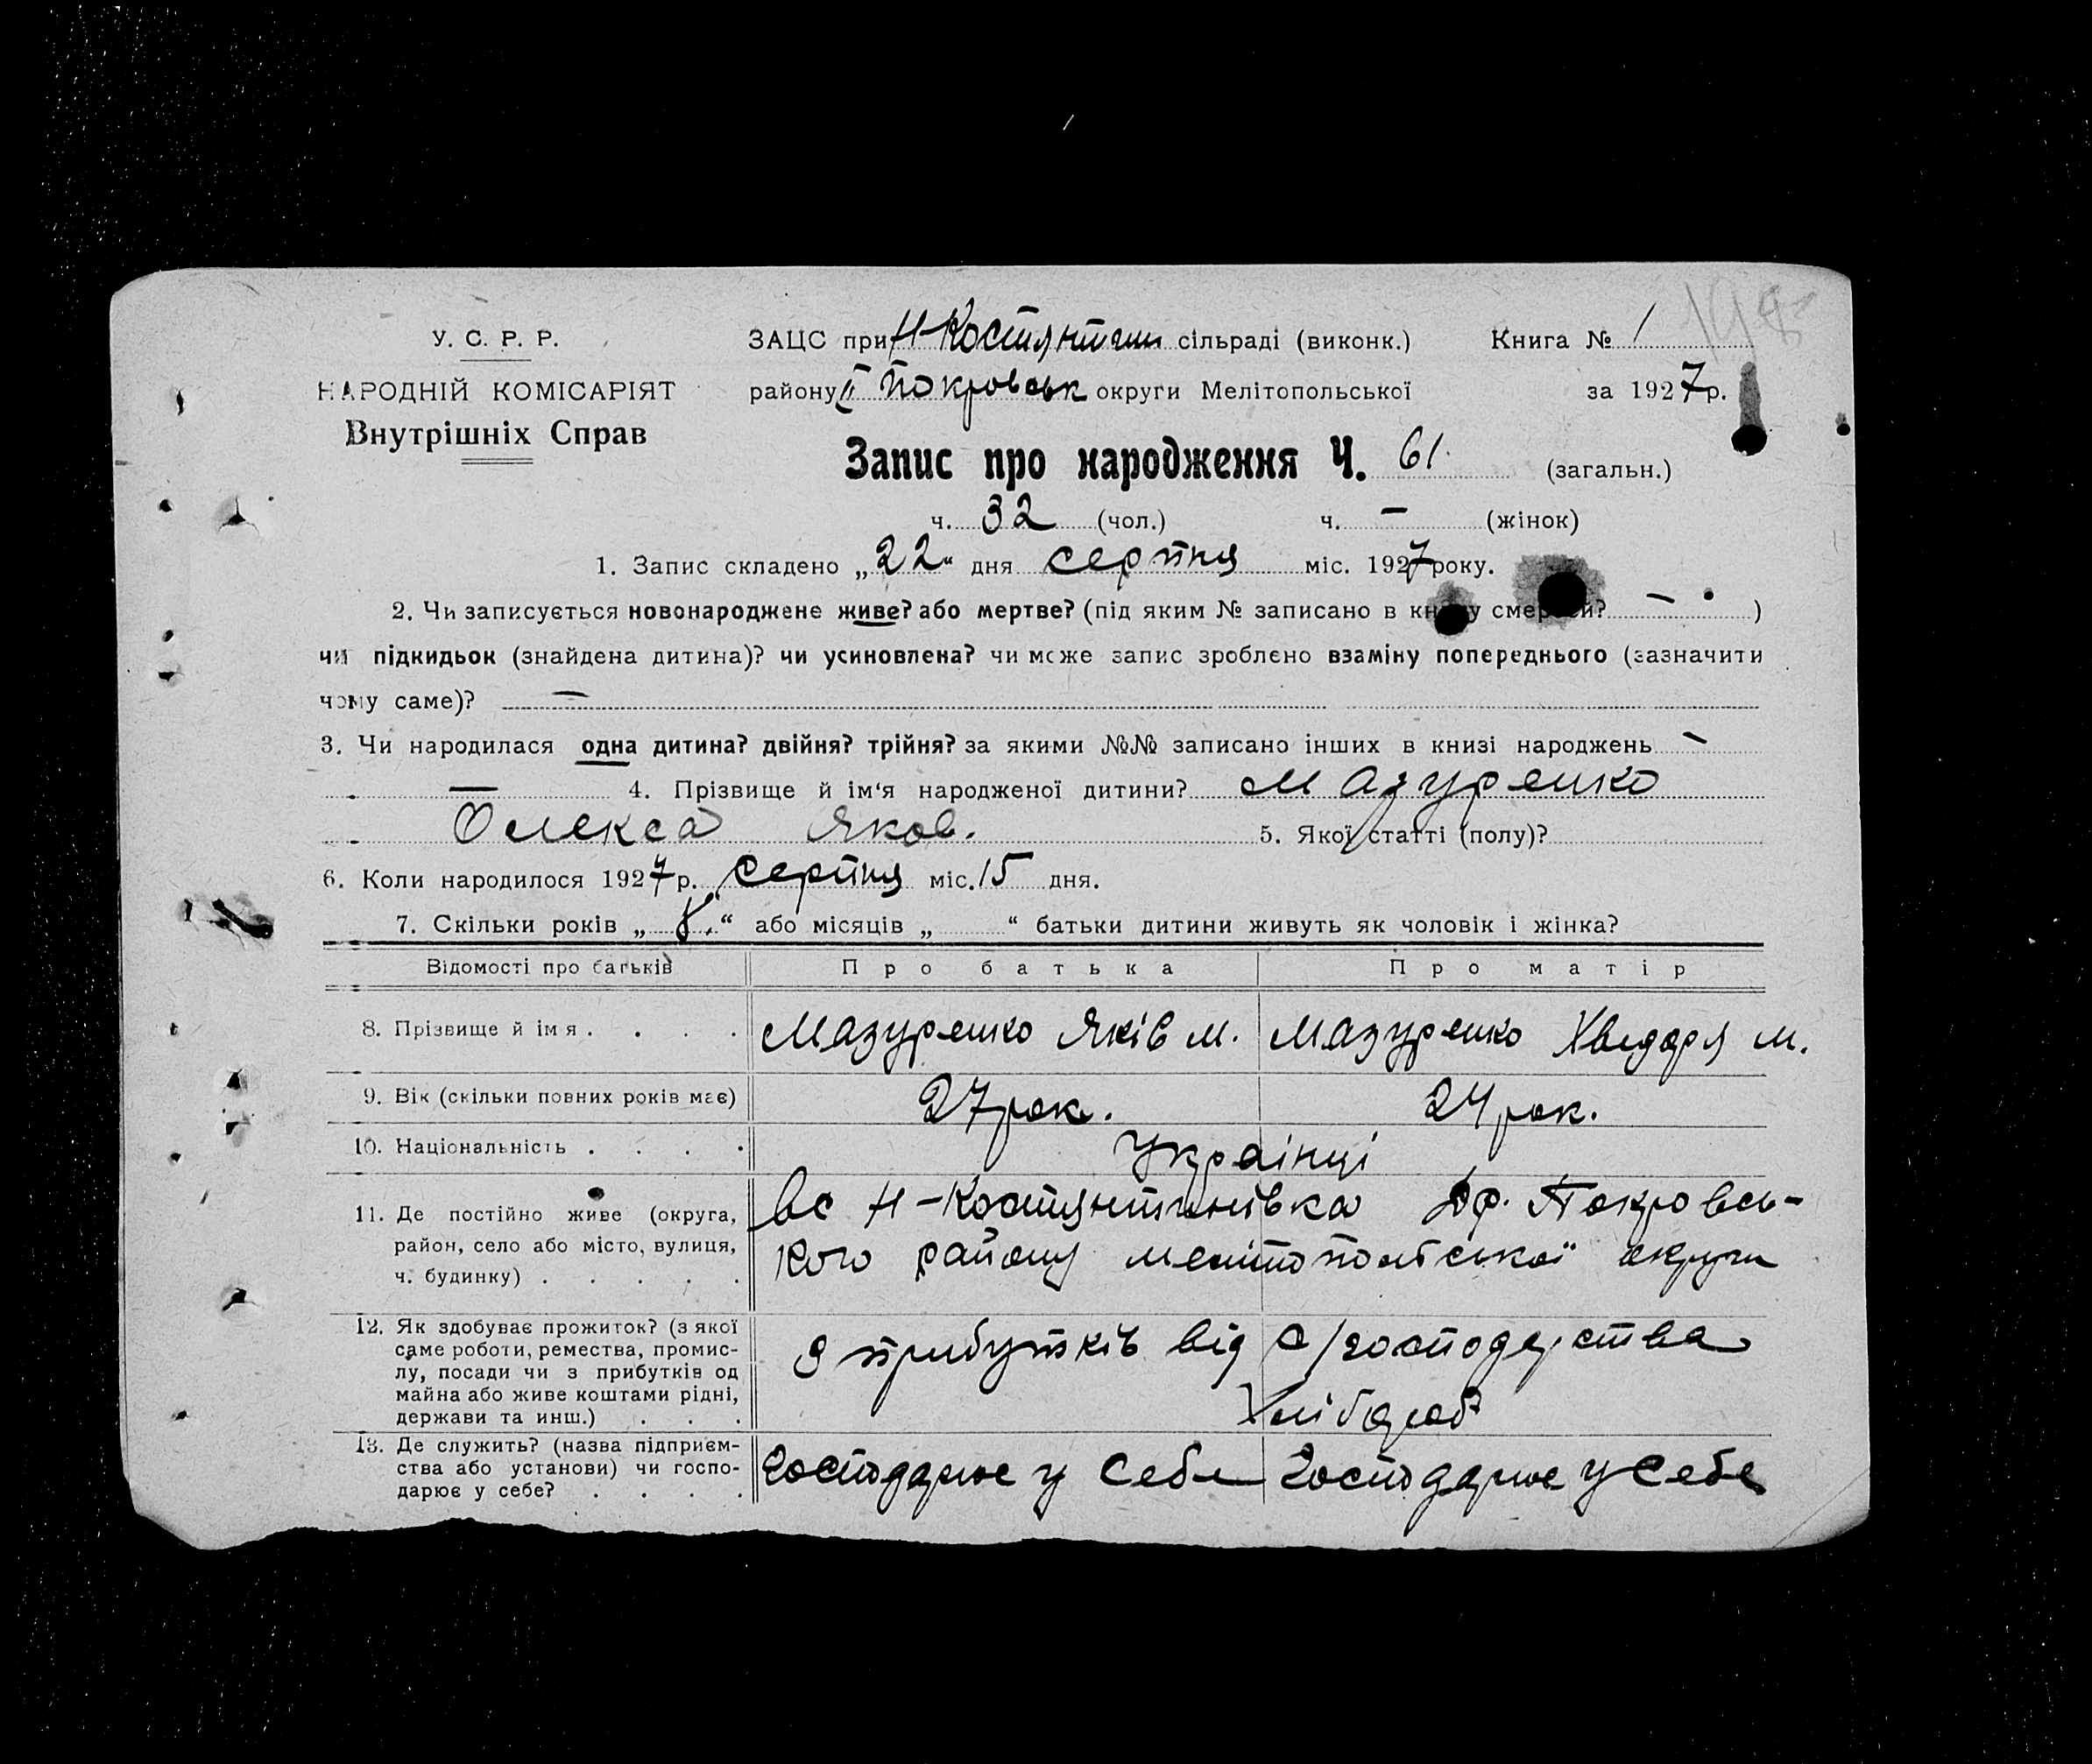 У. С. Р. Р.
НАРОДНІЙ КОМІСАРІЯТ
Внутрішніх Справ
ЗАЦС при Н-Костянтин сільраді (виконк.) Книга № 1
району II Покровськ округи Мелітопольської за 1927 р.
Запис про народження Ч. 61. (загальн.)
ч. 32 (чол.) ч. — (жінок)
1. Запис складено „22“ дня серпня міс. 1927 року.
2. Чи записується новонароджене живе? або мертве? (під яким № записано в книгу смертей? — )
чи підкидьок (знайдена дитина)? чи усиновлена? чи може запис зроблєно взаміну попереднього (зазначити
чому саме)? —
3. Чи народилася одна дитина? двійня? трійня? за якими №№ записано інших в книзі народжень —
— 4. Прізвище й ім'я народженої дитини? Мазуренко
Олекса Яков. 5. Якої статті (полу)?
6. Коли народилося 1927 р. серпня міс. 15 дня.
7. Скільки років „ “ або місяців „ “ батьки дитини живуть як чоловік і жінка?
Відомості про батьків Про батька Про матір
8. Прізвище й імя . . . . Мазуренко Яків М. Мазуренко Хведора М.
9. Вік (скільки повних років має) 27 рок. 24 рок.
10. Національність . . . . Українці
11. Де постійно живе (округа,
район, село або місто, вулиця,
ч. будинку) . . . . .
Вс Н-Костянтинівка Покровсь-
кого району Мелітопольської округи
12. Як здобуває прожиток? (з якої
саме роботи, ремества, промис-
лу, посади чи з прибутків од
майна або живе коштами рідні,
держави та инш.) . . .
З прибутків від с/господарства
Хлібороб
13. Де служить? (назва підприєм-
ства або установи) чи госпо-
дарює у себе? . . . .
Господарює у себе Господарює у себе